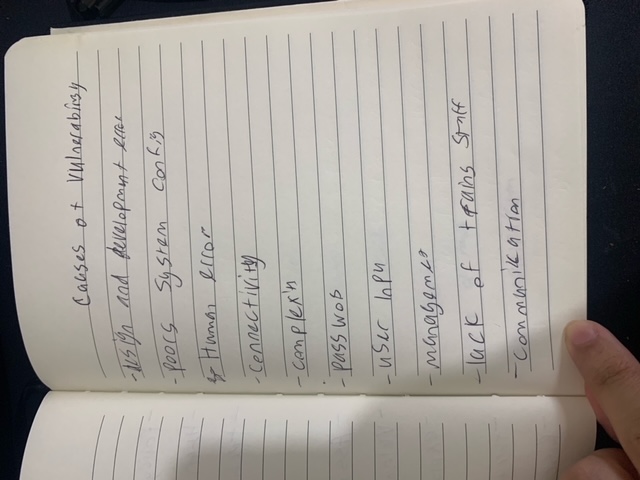 Causes of Vulnerability
- design and development error
- poors System Config
- Human error
- connectivity
- complex'n
- passwob
- user Inpu
- managemet
- lack of trains Staff
- Communikation